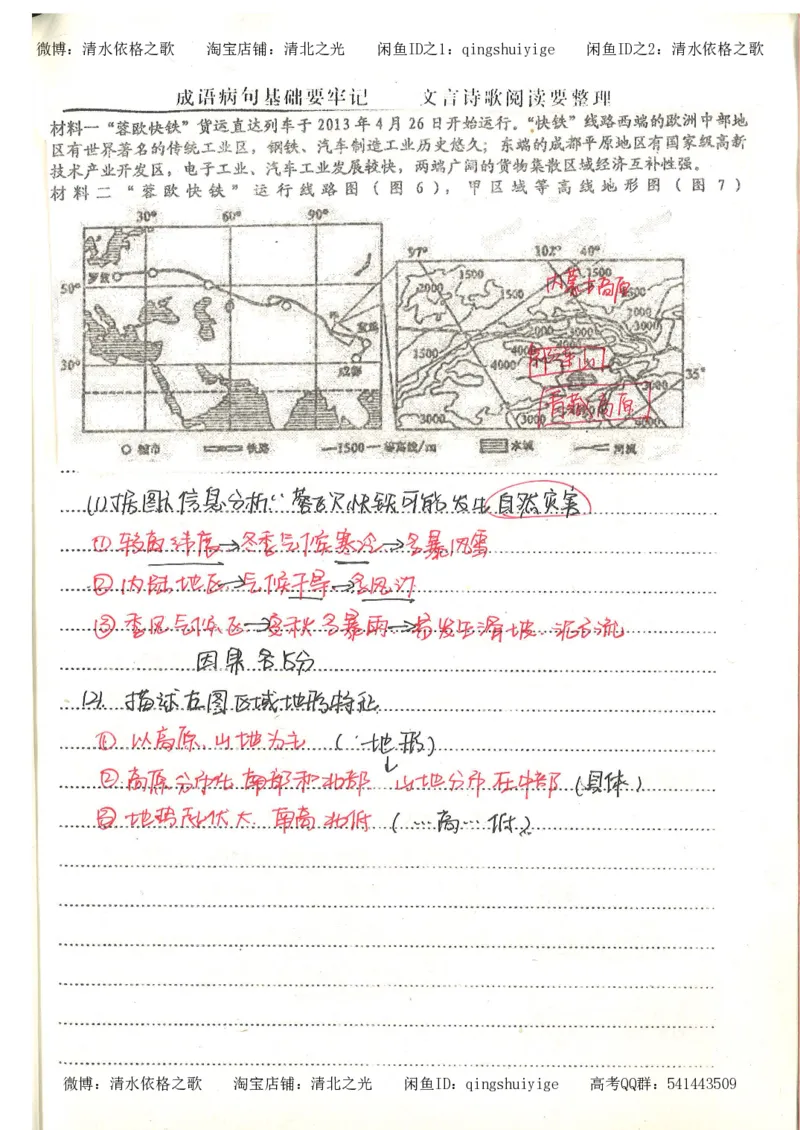 微博：清水依格之歌 淘宝店铺：清北之光 闲鱼ID之1：qingshuiyige 闲鱼ID之2：清水依格之歌
成语病句基础要牢记 文言诗歌阅读要整理
材料一“蓉欧快铁”货运直达列车于2013年4月26日开始运行。“快铁”线路西端的欧洲中部地
区有世界著名的传统工业区，钢铁、汽车制造工业历史悠久；东端的成都平原地区有国家级高新
技术产业开发区，电子工业、汽车工业发展较快，两端广阔的货物集散区域经济互补性强。
材料二“蓉欧快铁”运行线路图（图6），甲区域等高线地形图（图7）
30° 60° 90°
97° 102° 40°
1500 1500 内蒙古高原
2000 1500
罗兹
50°
2000
3000
甲 宝鸡
1500 4000 祁连山
成都
30° 35°
青藏高原
3000 3000 4000
城市 铁路 —1500—等高线/m 水域 河流
(1)据图信息分析“蓉欧快铁可能发生自然灾害
①较高纬度→冬季气候寒冷→多暴风雪
②内陆地区→气候干旱→多风沙
③季风气候区→夏秋多暴雨→易发生滑坡、泥石流
因果各5分
(2).描述左图区域地形特征
①以高原、山地为主（∵地形）
②高原分布在南部和北部 山地分布在中部（具体）
③地势起伏大.南高北低（…高…低）
微博：清水依格之歌 淘宝店铺：清北之光 闲鱼ID：qingshuiyige 高考QQ群：541443509